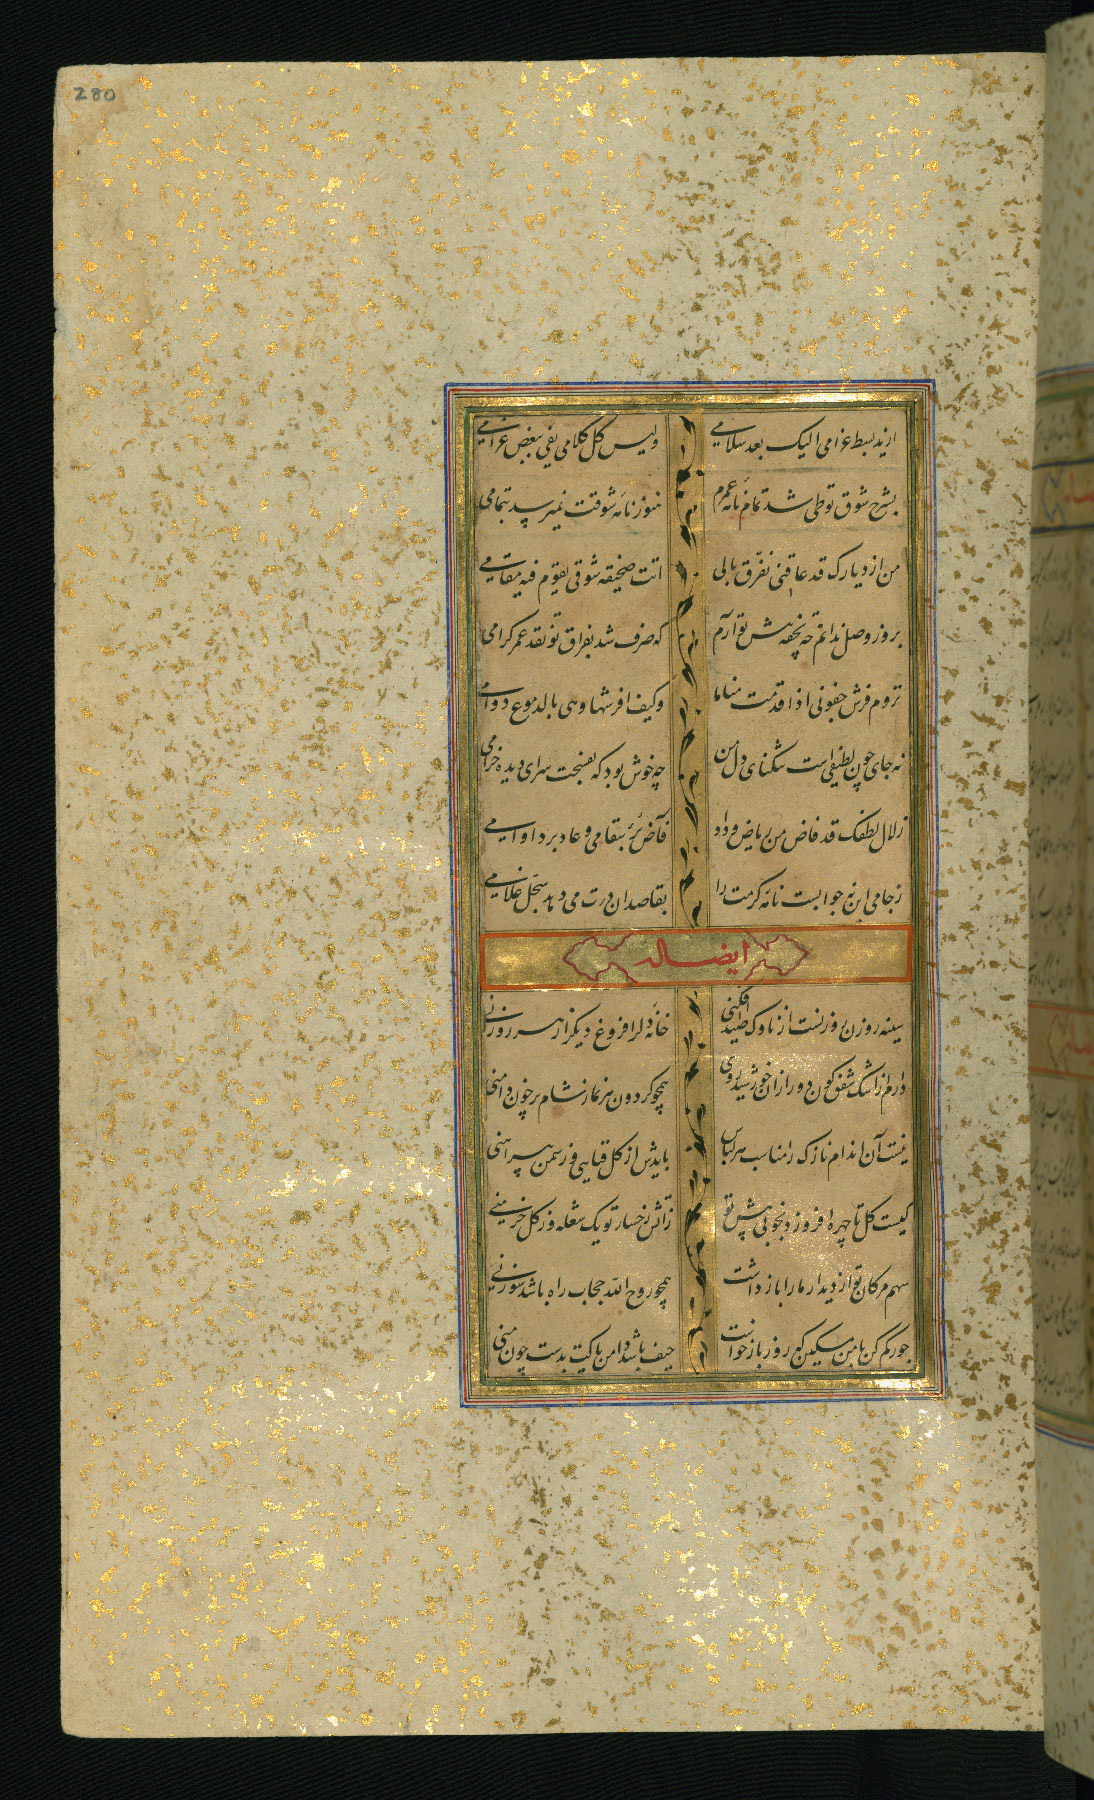 280
ارید بسط غرامی الیک بعد سلامی
ولیس کل کلامی یفی ببعض غرامی
بشرح شوق تو طی شد تمام نامه عمرم
هنوز نامه شوقت نمیرسد بتمامی
من ازدیارک قد عاقنی تفرق بالی
اتت صحیفه شوقی یقوم فیه مقامی
بروز وصل ندانم چه تحفه پیش تو آرم
که صرف شد بفراق تو نقد عمر گرامی
تروم فرش جفونی اذا قدمت مناما
وکیف افرشها وهی بالدموع دوامی
نه جای چون تو لطیفی است تنگنای دل من
چه خوش بود که بفسحت سرای دیده خرامی
زلال لطفک قد فاض من ریاض وداد
بقامی وعاد برد اوامی
ز جامی این نه جوابست نامه کرمت را
بقاصدان درت می دهد سجل غلامی
ایضاله
سینه روزن روزنست از ناوک صید افکنی
خانه دلرا فروغ دیگر از هر روزنی
دارم از اشک شفق گون دور ازان خورشید روی
همچو گردون هر نماز شام پر خون دامنی
نیست آن اندام نازک را مناسب هر لباس
بایدش از گل قبایی وز سمن پیراهنی
کیست گل تا چهره افروزد بخوبی پیش تو
ز آتش رخسار تو یک شعله وز گل خرمنی
سهم مژگان تو از دیدار ما را باز داشت
همچو روح الله حجاب راه باشد سوزنی
جور کم کن با من مسکین که روز بازخواست
حیف باشد دامن پاکت بدست چون منی